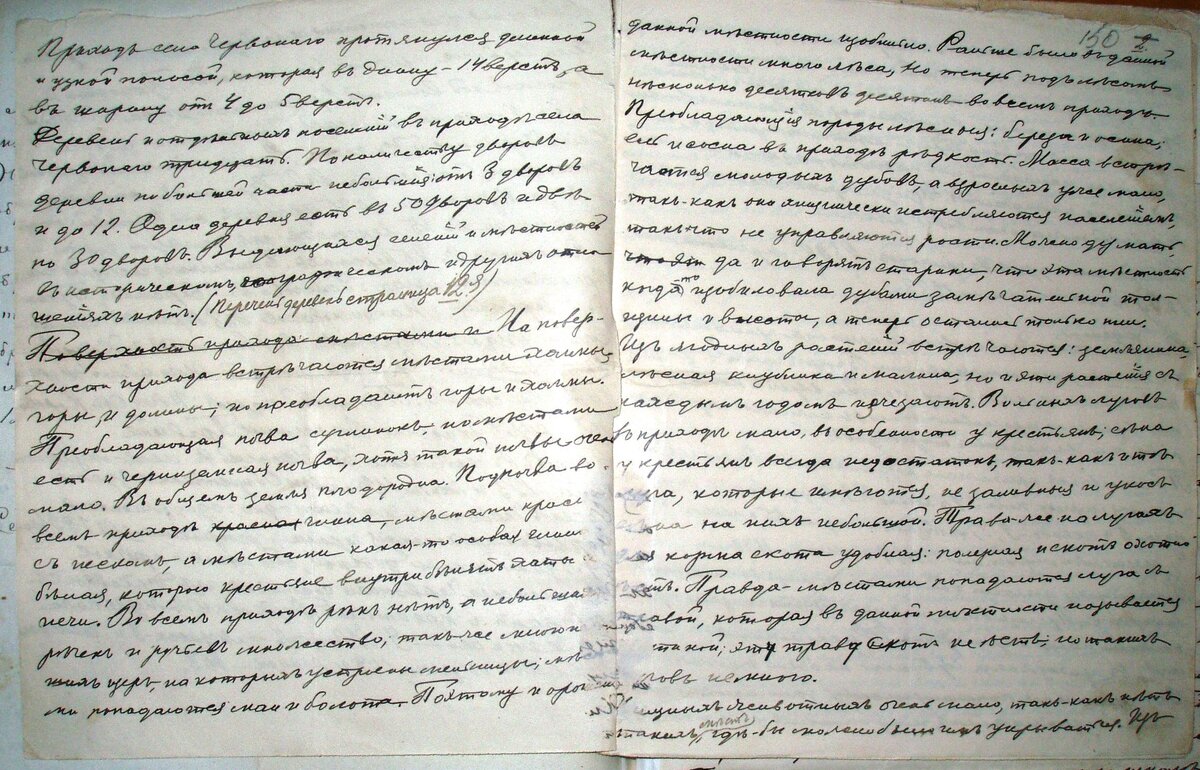 Приходъ села Червонаго протянулся длинной
и узкой полосой, которая въ длину - 14 верстъ, а
въ ширину отъ 4 до 5 верстъ.
Деревень и отдѣльныхъ поселенiй въ приходѣ села
Червонаго тридцать. По количеству дворовъ
деревни по большей части небольшiя: отъ 3 дворовъ
и до 12. Одна деревня есть въ 50 дворовъ и двѣ
по 30 дворовъ. Выдающихся селенiй и мѣстностей
въ историческомъ, географическомъ и другихъ отно
шенiяхъ нѣтъ. (Перечень деревень страница 12
Поверхность прихода мѣстами и На повер-
хности прихода встрѣчаются мѣстами холмы
горы, и долины; но преобладаетъ горы и холмы.
Преобладающая почва суглинокъ, но мѣстами
есть и черноземная почва, хотя такой почвы очень
мало. Въ общемъ земля плодородна. Подпочва во-
всемъ приходѣ красная глина, мѣстами крас
съ пескомъ, а мѣстами какая-то особая глин
бѣлая, которою крестьяне внутри бѣлятъ хаты
печи. Во всемъ приходѣ рѣкъ нѣтъ, а небольши
рѣчекъ и ручьевъ множество; такъ-же много
на которыхъ устроены мельницы; мѣс
ми попадаются мхи и болота. Поэтому и орош
150
данной мѣстности обильно. Раньше было въ данной
мѣстности много лѣса, но теперь подъ лѣсомъ
нѣсколько десятковъ десятинъ во всемъ приходѣ.
Преобладающiя породы лѣсныя: береза и осина;
ель и сосна въ приходѣ рѣдкость. Масса встрѣ-
чается молодыхъ дубовъ, а взрослыхъ уже мало,
такъ-какъ они хищнически истребляются населенiемъ,
такъ что не управляются рости. Можно думать,
да и говорятъ старики, что эта мѣстность
когда то изобиловала дубами замѣчательной тол-
щины и высоты, а теперь остались только пни.
Изъ ягодныхъ растенiй встрѣчаются: земляника,
лѣсная клубника и малина, но и эти растенiя съ
каждымъ годомъ изчезаютъ. Вольныхъ луговъ
въ приходѣ мало, въ особенности у крестьянъ; сѣна
у крестьянъ всегда недостатокъ, такъ-какъ и тѣ
га, которые имѣются, не заливныя и укосъ
сѣна на нихъ небольшой. Трава-же на лугахъ
ля корма скота удобная: полезная и скотъ охотно
ѣстъ. Правда - мѣстами попадаются луга съ
равой, которая въ данной мѣстности называется
эту траву скотъ не ѣстъ; но такихъ
говъ немного.
животныхъ очень мало, такъ-какъ нѣтъ
такихъ мѣстъ, гдѣ-бы можно было имъ укрываться. Изъ